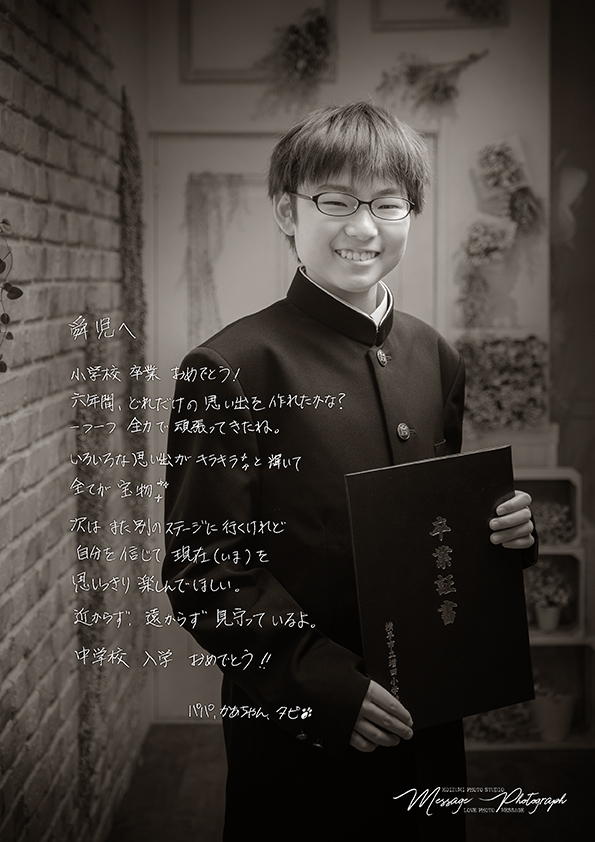 舜児へ
小学校 卒業 おめでとう!
六年間、どれだけの思い出を作れたかな?
一つ一つ 全力で 頑張ってきたね。
いろいろな思い出が キラキラと 輝いて
全てが 宝物
次は また別のステージに行くけれど
自分を信じて 現在(いま)を
思いっきり 楽しんでほしい。
近からず、遠からず 見守っているよ。
中学校 入学 おめでとう!!
パパ、かあちゃん、タビ
卒業証書
横手市立増田小学
KOIZUMI PHOTO STUDIO
Message Photograph
LOVE PHOTO MESSAGE